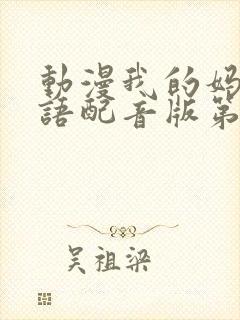 動漫我的媽
語配音版第
吳祖梁